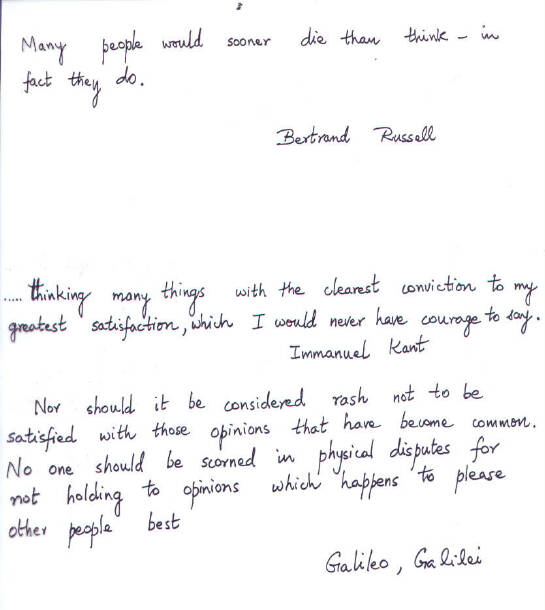 Many people would sooner die than think – in
fact they do.
Bertrand Russell
..... thinking many things with the clearest conviction to my
greatest satisfaction, which I would never have courage to say.
Immanuel Kant
Nor should it be considered rash not to be
satisfied with those opinions that have become common.
No one should be scorned in physical disputes for
not holding to opinions which happens to please
other people best
Galileo, Galilei